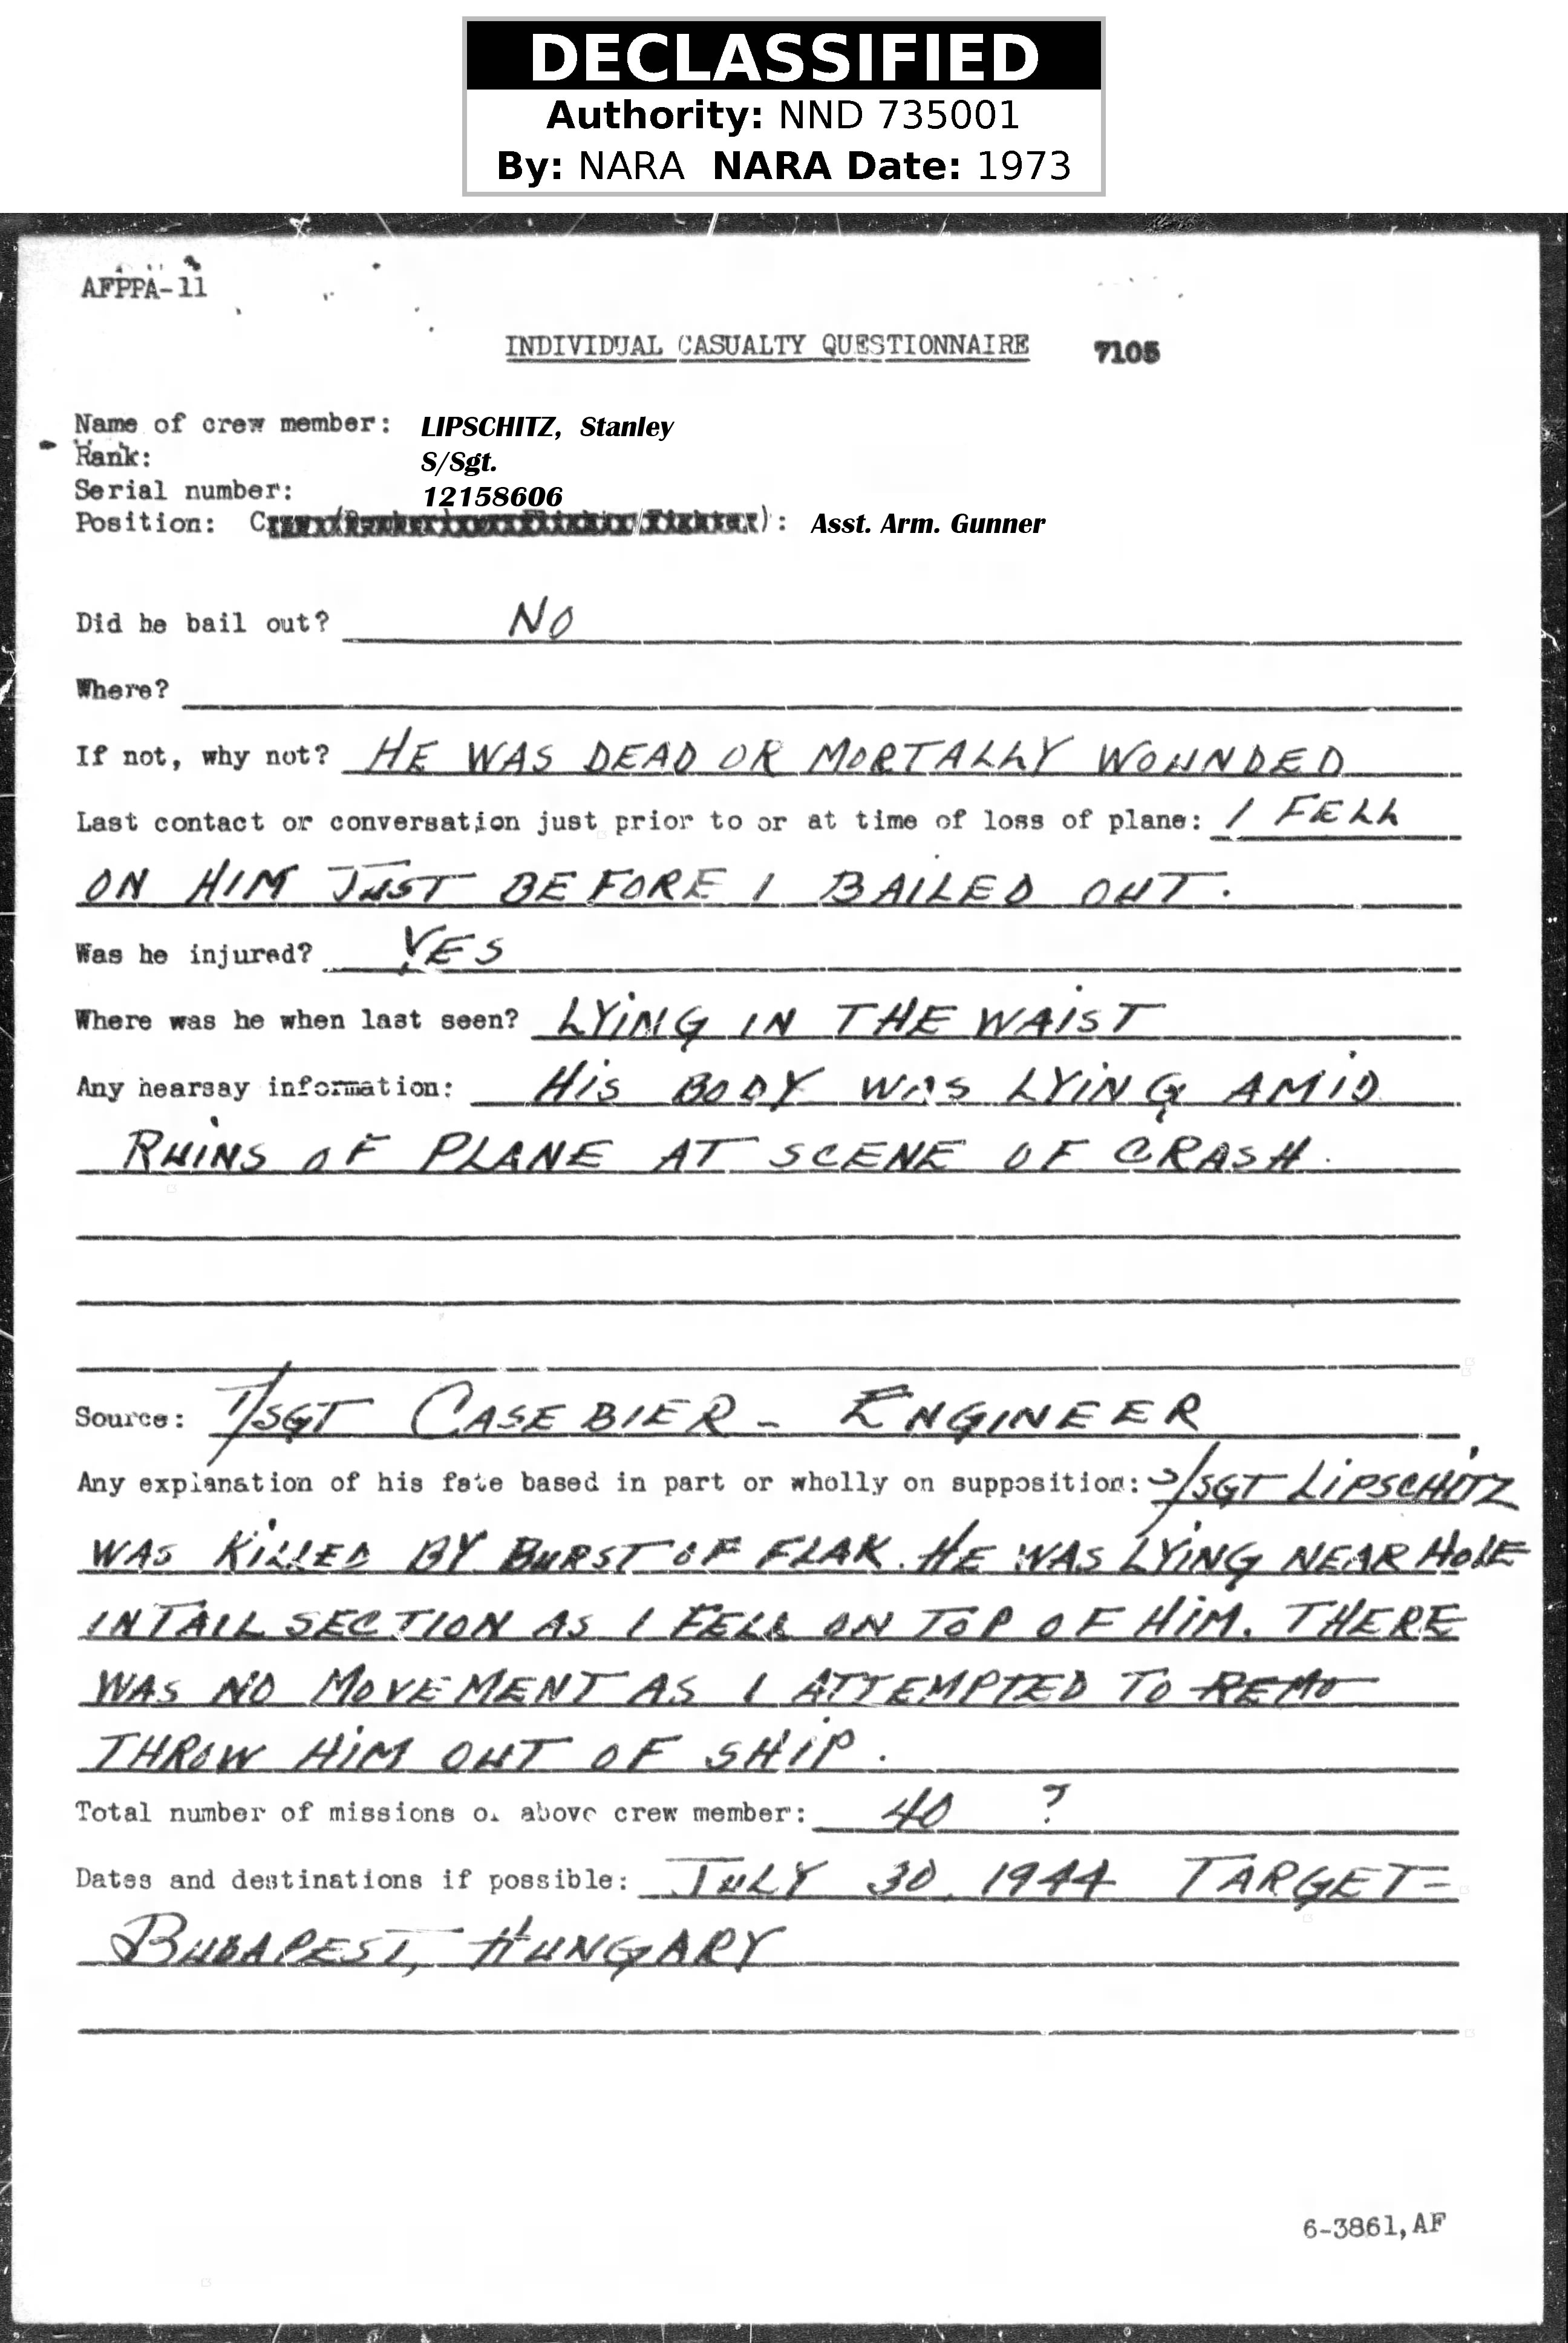 DECLASSIFIED
Authority: NND 735001
By: NARA NARA Date: 1973
AFPPA-11
INDIVIDUAL CASUALTY QUESTIONNAIRE 7105
Name of crew member: LIPSCHITZ, Stanley
Rank: S/Sgt.
Serial number: 12158606
Position: Asst. Arm. Gunner
Did he bail out? NO
Where?
If not, why not? HE WAS DEAD OR MORTALLY WOUNDED
Last contact or conversation just prior to or at time of loss of plane: I FELL
ON HIM JUST BEFORE I BAILED OUT.
Was he injured? YES
Where was he when last seen? LYING IN THE WAIST
Any hearsay information: HIS BODY WAS LYING AMID
RUINS OF PLANE AT SCENE OF CRASH.
Source: T/SGT CASEBIER - ENGINEER
Any explanation of his fate based in part or wholly on supposition: S/SGT LIPSCHITZ
WAS KILLED BY BURST OF FLAK. HE WAS LYING NEAR HOLE
IN TAIL SECTION AS I FELL ON TOP OF HIM. THERE
WAS NO MOVEMENT AS I ATTEMPTED TO REMO
THROW HIM OUT OF SHIP.
Total number of missions of above crew member: 40 ?
Dates and destinations if possible: JULY 30, 1944 TARGET =
BUDAPEST, HUNGARY
6-3861, AF